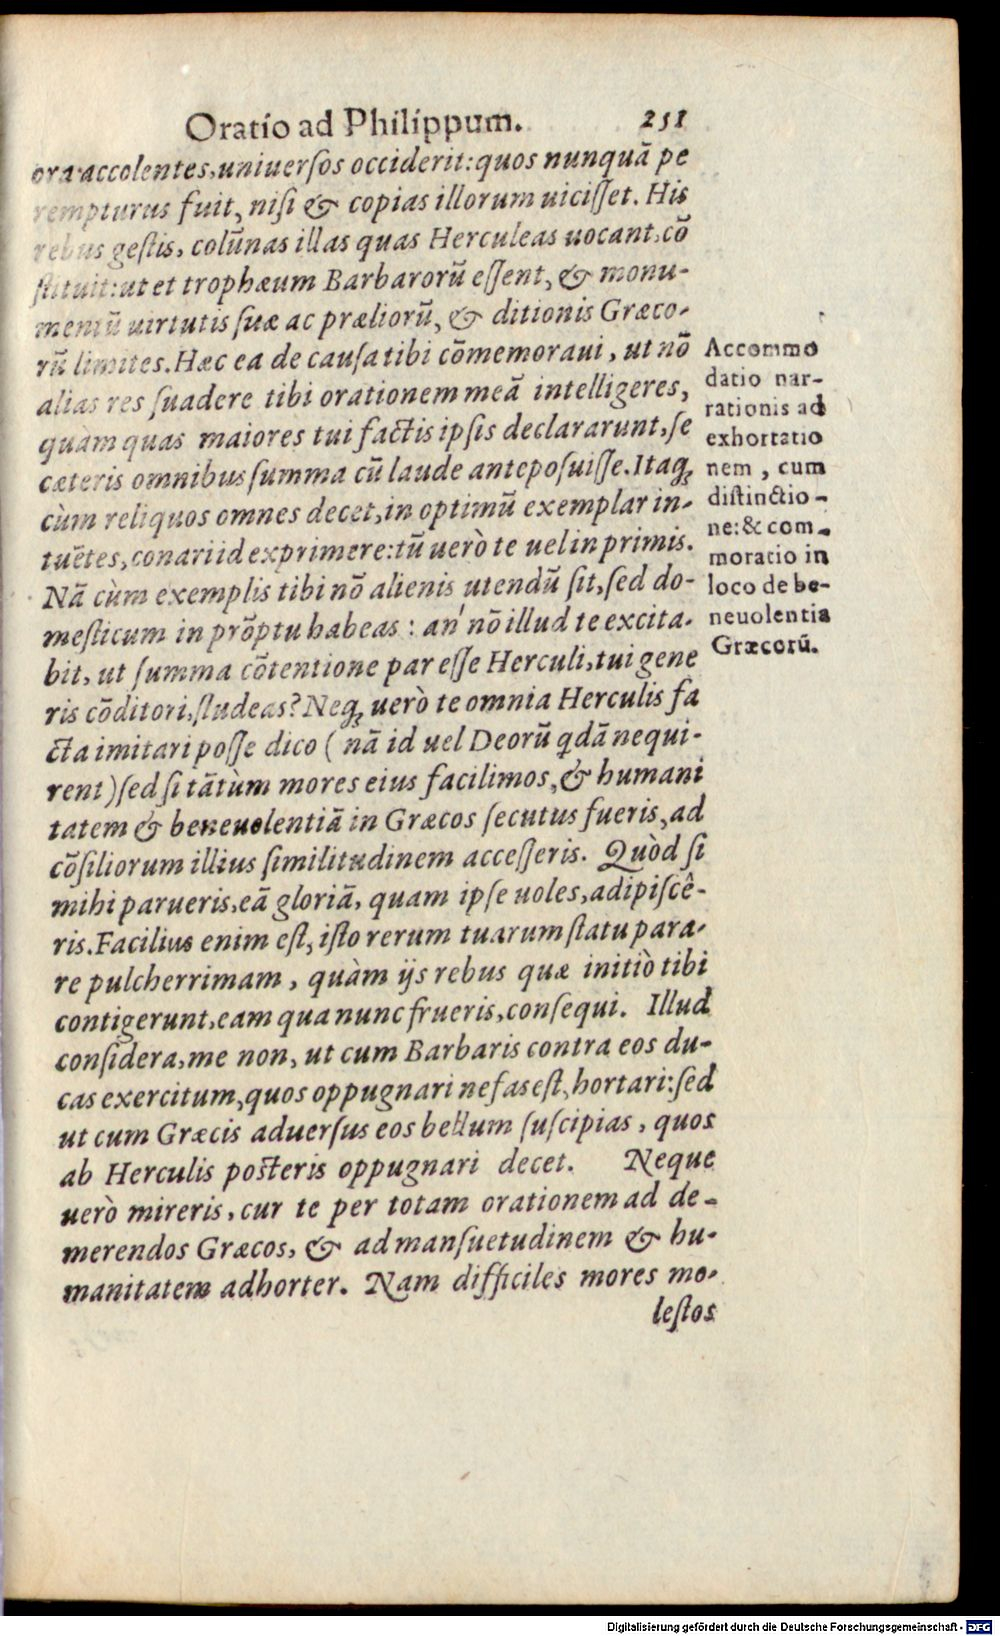 Oratio ad Philippum. 251
ora accolentes, uniuerſos occiderit: quos nunquā pe
rempturus fuit, niſi & copias illorum uiciſſet. His
rebus geſtis, colūnas illas quas Herculeas uocant, cō
ſtituit: ut et trophæum Barbarorū eſſent, & monu-
mentū uirtutis ſuæ ac præliorū, & ditionis Græco-
rū limites. Hæc ea de cauſa tibi cōmemoraui, ut nō
alias res ſuadere tibi orationem meā intelligeres,
quàm quas maiores tui factis ipſis declararunt, ſe
cæteris omnibus ſumma cū laude antepoſuiſſe. Itaqꝫ
cùm reliquos omnes decet, in optimū exemplar in-
tuētes, conari id exprimere: tū uerò te uel in primis.
Nā cùm exemplis tibi nō alienis utendū ſit, ſed do-
meſticum in prōptu habeas: an' nō illud te excita-
bit, ut ſumma cōtentione par eſſe Herculi, tui gene
ris cōditori, ſtudeas? Neqꝫ uerò te omnia Herculis fa
cta imitari poſſe dico ( nā id uel Deorū qdā nequi-
rent) ſed ſi tātùm mores eius facilimos, & humani
tatem & beneuolentiā in Græcos ſecutus fueris, ad
cōſiliorum illius ſimilitudinem acceſſeris. Quòd ſi
mihi parueris, eā gloriā, quam ipſe uoles, adipiſcê-
ris. Facilius enim eſt, iſto rerum tuarum ſtatu para-
re pulcherrimam, quàm ijs rebus quæ initiò tibi
contigerunt, eam qua nunc frueris, conſequi. Illud
conſidera, me non, ut cum Barbaris contra eos du-
cas exercitum, quos oppugnari nefas eſt, hortari: ſed
ut cum Græcis aduerſus eos bellum ſuſcipias, quos
ab Herculis poſteris oppugnari decet. Neque
uerò mireris, cur te per totam orationem ad de-
merendos Græcos, & ad manſuetudinem & hu-
manitatem adhorter. Nam difficiles mores mo-
leſtos
Accommo
datio nar-
rationis ad
exhortatio
nem, cum
diſtinctio-
ne: & com-
moratio in
loco de be-
neuolentia
Græcorū.
Digitalisierung gefördert durch die Deutsche Forschungsgemeinschaft - DFG